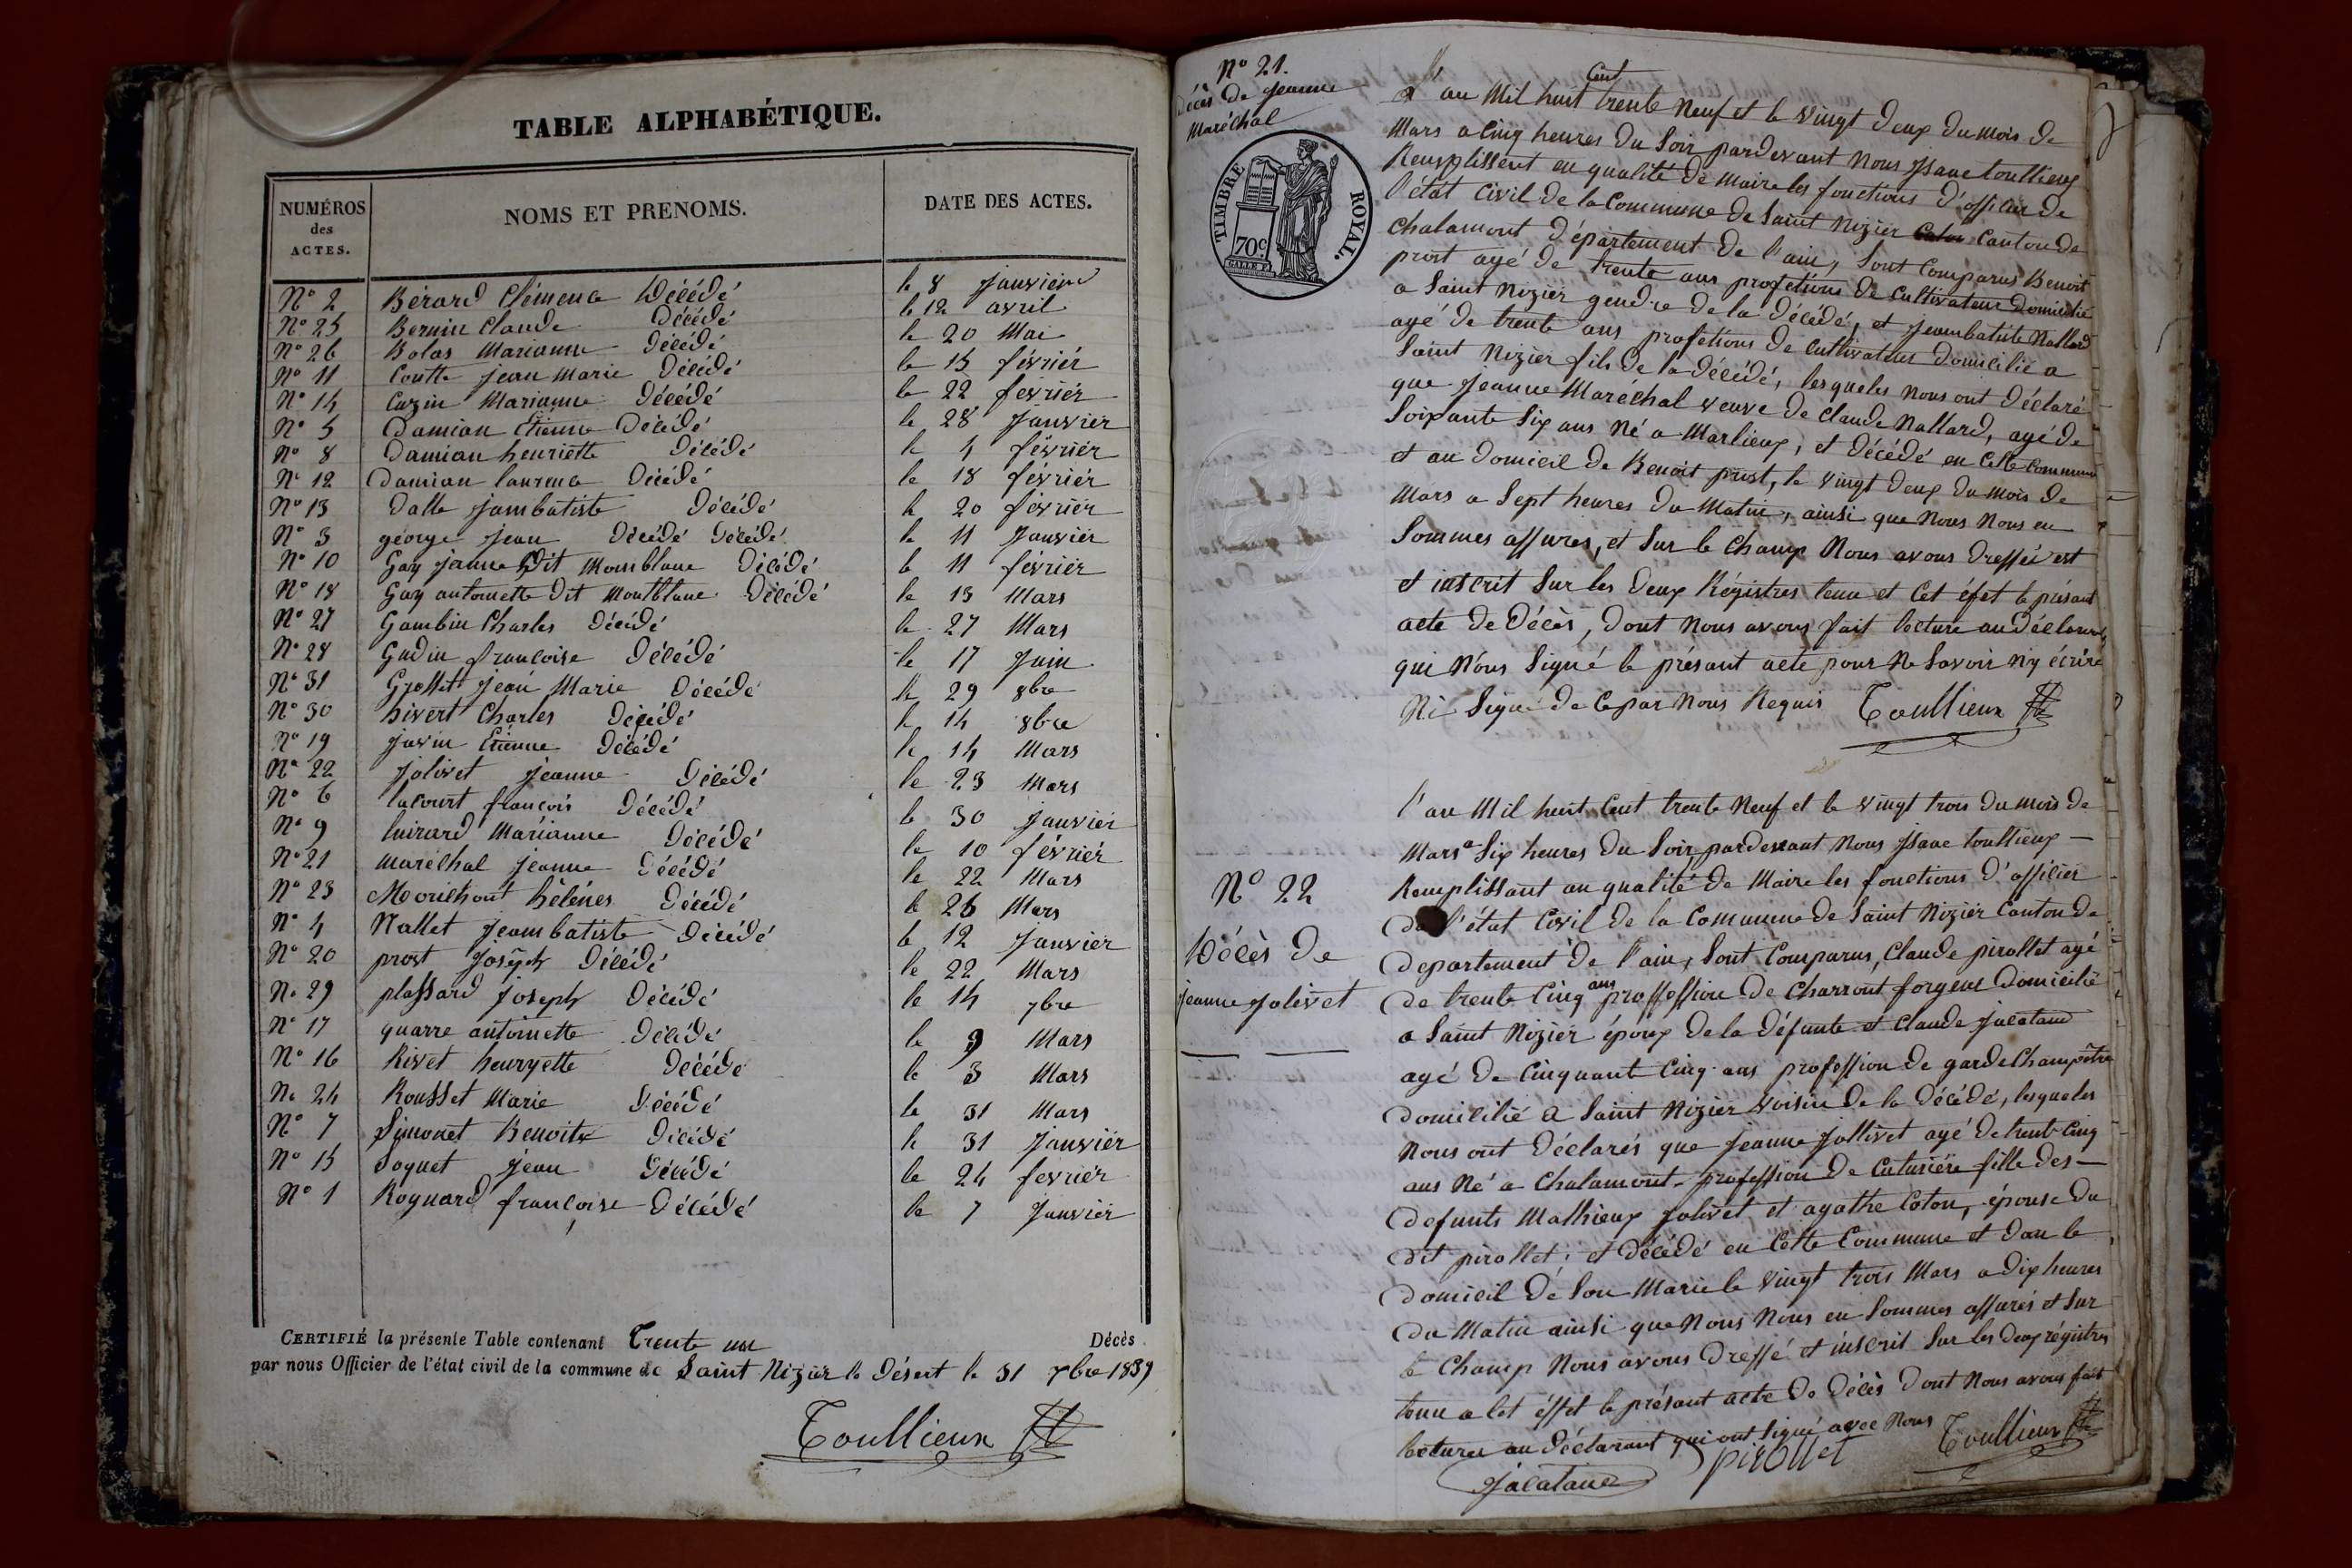 TABLE ALPHABÉTIQUE.
NUMÉROS des ACTES. NOMS ET PRENOMS. DATE DES ACTES.
N° 2 Bérard Clémence Décédé le 8 janvier
N° 25 Bernin Claude Décédé le 12 avril
N° 26 Bolas Marianne Décédé le 20 Mai
N° 11 Coutte jean Marie Décédé le 15 février
N° 14 Cuzin Marianne Décédé le 22 fevrier
N° 5 Damian Étienne Décédé le 28 Janvier
N° 8 Damian henriette Décédé le 4 février
N° 12 Damian laurence Décédé le 18 février
N° 13 Dalle jambatiste Décédé le 20 février
N° 3 george Jean Décédé Décédé le 11 Janvier
N° 10 Gay jeanne Dit Momblanc Décédé le 11 février
N° 18 Gay antoinette Dit Montblanc Décédé le 13 Mars
N° 27 Gambin Charles Décédé le 27 Mars
N° 28 Gudin francoise Décédé le 17 Juin
N° 31 jean Marie Décédé le 29 8bre
N° 30 hivert Charles Décédé le 14 8bre
N° 19 Juvin Étienne Décédé le 14 Mars
N° 22 Jolivet Jeanne Décédé le 23 Mars
N° 6 lacourt francois Décédé le 30 Janvier
N° 9 luirard Marianne Décédé le 10 février
N° 21 maréchal jeanne Décédé le 22 Mars
N° 23 hélénes Décédé le 26 Mars
N° 4 Nallet Jeambatiste Décédé le 12 Janvier
N° 20 prost Joseph Décédé le 22 Mars
N° 29 plassard Joseph Décédé le 14 7bre
N° 17 quarre antoinette Décédé le 9 Mars
N° 16 Rivet henryette Décédé le 3 Mars
N° 24 Rousset Marie Décédé le 31 Mars
N° 7 Simonet Benoite Décédé le 31 Janvier
N° 15 Soquet Jean Décédé le 24 fevrier
N° 1 Roynard françoise Décédé le 7 Janvier
CERTIFIÉ la présente Table contenant Trente un Décès
par nous Officier de l'état civil de la commune de Saint Nizier le Désert le 31 1839
Toullieux
N° 21.
Décès de Jeanne
Maréchal
TIMBRE ROYAL.
70c
L'an Mil huit Cent trente Neuf et le vingt Deux du mois de
Mars a Cinq heures du Soir pardevant Nous Isaac toullieux
Remplissent en qualité de maire les fonctions d'officier de
l'état Civil de la Commune de Saint Nizier Canton de
Chalamont Département de l'ain, Sont Comparus Benoit
prost agé de trente ans profetions de Cultivateur Domicilié
a Saint Nizier gendre de la Décédé, et Jeambatiste Nallard
agé de trente ans profetions de Cultivateur Domicilié a
Saint Nizier fils de la Décédé, lesqueles Nous ont Déclaré
que Jeanne Maréchal veuve de Claude Nallard, agé de
Soixante Six ans Né a Marlieux, et Décédé en Cette Commune
et au Domicil de Benoit prost, le vingt Deux du mois de
Mars a Sept heures du Matin, ainsi que Nous Nous en
Sommes assures, et Sur le Champ Nous avons Dressé est
et inscrit Sur les Deux Régistres tenu et Cet éfet le présant
acte de Décès, Dont Nous avons fait lecture au Déclarant,
qui N'ons Signé le présant acte pour Ne Savoir Ny écrire
Ni Signé de Ce par Nous Requis Toullieux
N° 22
Décès de
Jeanne Jolivet
l'an Mil huit Cent trente Neuf et le vingt trois du mois de
Mars a Six heures du Soir pardevant Nous Isaac toullieux
Remplissant en qualité de Maire les fonctions d'officier
de l'état Civil de la Commune de Saint Nizier Canton de
Departement de l'ain, Sont Comparus, Claude pirollet agé
de trente Cinq ans proffession de Charront forgeur Domicilié
a Saint Nizier époux de la Défunte et Claude Jacataud
agé de Cinquante Cinq ans profession de garde Champêtre
Domicilié a Saint Nizier voisin de la Décédé, lesqueles
Nous ont Déclarés que Jeanne Jollivet agé de trente Cinq
ans Né a Chalamont profession de Cuturière fille des
Defunts Mathieux Jolivet et agathe Coton, épouse du
Dit pirollet, et Décédé en Cette Commune et Dan le
Domicil de Son Marie le vingt trois Mars a Dix heures
du Matin ainsi que Nous Nous en Sommes assurés et Sur
le Champ Nous avons Dressé et inscrit Sur les Deux régistres
tenu a Cet éffet le présant acte de Décès Dont Nous avons fait
lecture au Déclarant qui ont Signé avec Nous
Jacataud pirollet Toullieux